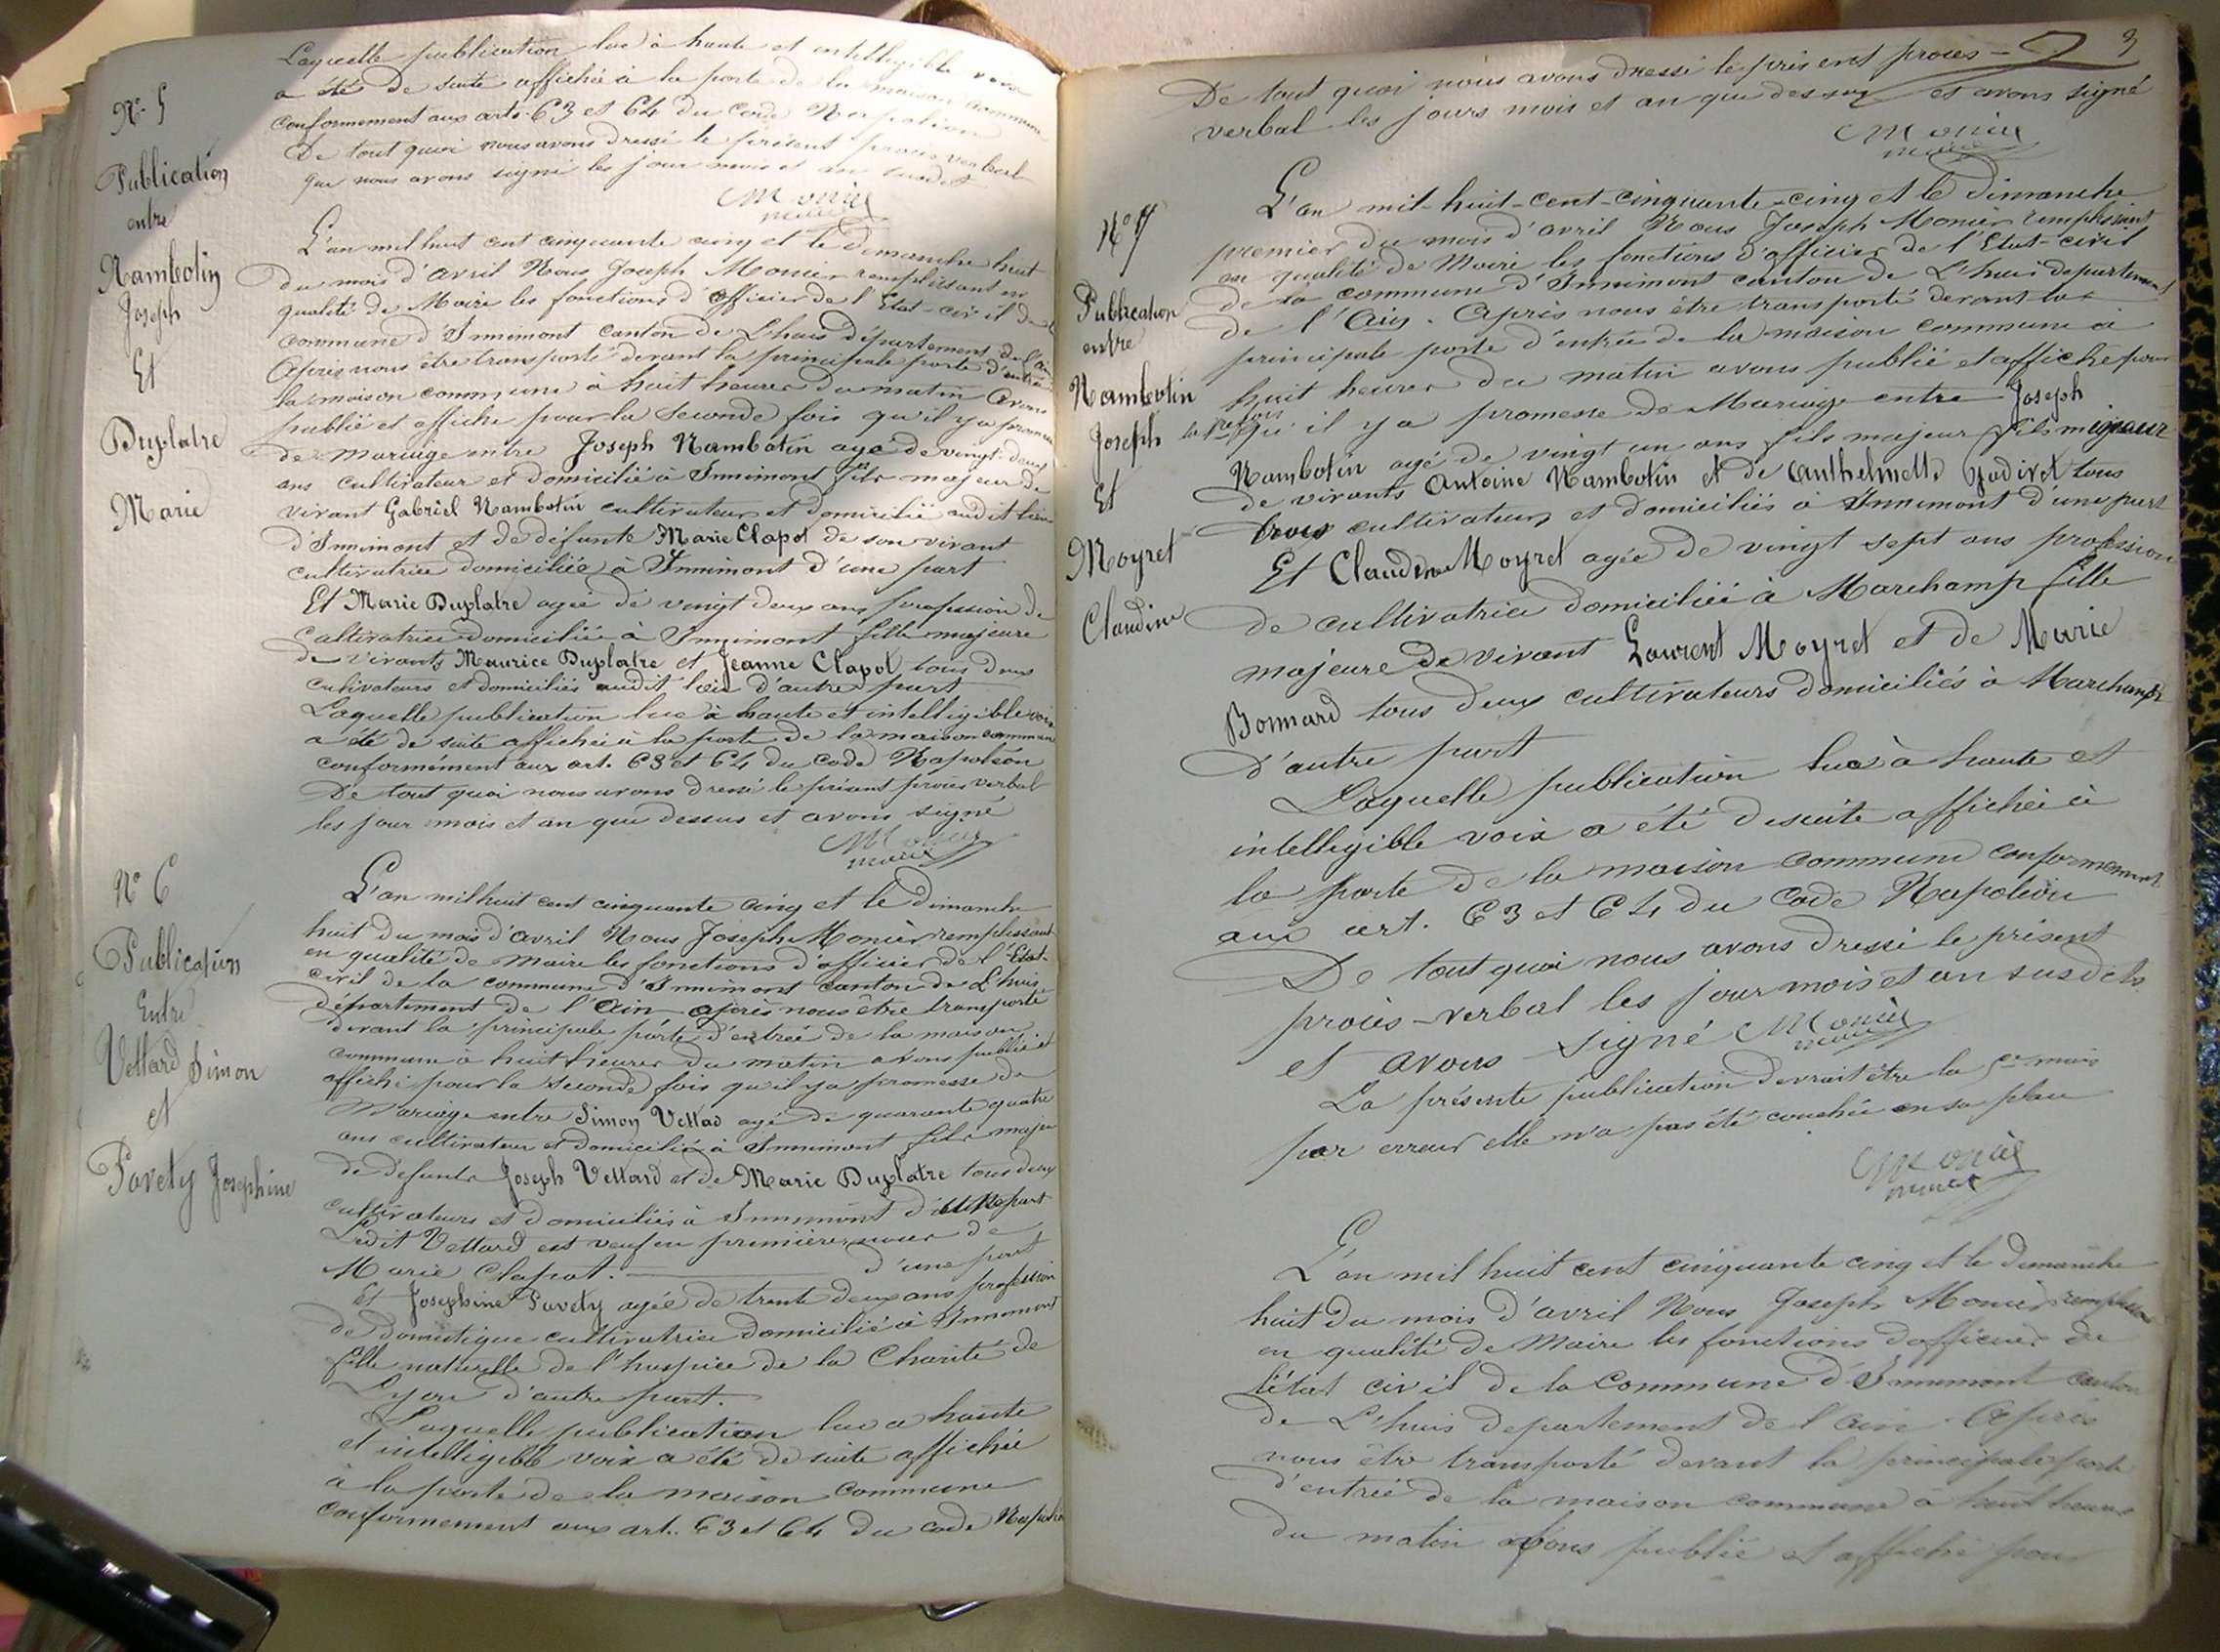 Laquelle publication lue à haute et intelligible voix
a été de suite affichée à la porte de la maison commune
conformement aux arts. 63 et 64 du Code Napoléon
De tout quoi nous avons dressé le présent procès verbal
que nous avons signé les jour mois et an susdits
Monier
maire
N° 5
Publication
entre
Nambotin
Joseph
Et
Duplatre
Marie
L'an mil huit cent cinquante cinq et le Dimanche huit
du mois d'avril Nous Joseph Monier remplissant en
qualité de Maire les fonctions d'officier de l'Etat-civil de la
commune d'Innimont canton de Lhuis département de l'Ain
Après nous être transporté devant la principale porte d'entrée
la maison commune à huit heures du matin Avons
publié et affiché pour la Seconde fois qu'il y a promesse
de mariage entre Joseph Nambotin agé de vingt-deux
ans cultivateur et domicilié à Innimont fils majeur de
vivant Gabriel Nambotin cultivateur et domicilié audit lieu
d'Innimont et de défunte Marie Clapot de son vivant
cultivatrice domiciliée à Innimont d'une part
Et Marie Duplatre agée de vingt deux ans profession de
Cultivatrice domiciliée à Innimont fille majeure
de vivants Maurice Duplatre et Jeanne Clapot tous deux
cultivateurs et domiciliés audit lieu d'autre part
Laquelle publication lue à haute et intelligible voix
a été de suite affichée à la porte de la maison commune
conformément aux art. 63 et 64 du Code Napoléon
De tout quoi nous avons dressé le présent procès verbal
les jour mois et an que dessus et avons signé
Monier
maire
N° 6
Publication
Entre
Vettard Simon
et
Pavety Josephine
L'an mil huit cent cinquante cinq et le Dimanche
huit du mois d'avril Nous Joseph Monier remplissant
en qualité de maire les fonctions d'officier de l'Etat-
civil de la commune d'Innimont canton de Lhuis
département de l'Ain après nous être transporté
devant la principale porte d'entrée de la maison
commune à huit heures du matin avons publié et
affiché pour la Seconde fois qu'il y a promesse de
Mariage entre Simon Vettad agé de quarante quatre
ans cultivateur et domicilié à Innimont fils majeur
de défunts Joseph Vettard et de Marie Duplatre tous deux
cultivateurs et domiciliés à Innimont d'une part
Ledit Vettard est veuf en premières noces de
Marie Clapot. d'une part
Et Josephine Pavety agée de trente deux ans profession
de domestique cultivatrice domicilié à Innimont
fille naturelle de l'hospice de la Charité de
Lyon d'autre part.
Laquelle publication lue a haute
et intelligible voix a été de suite affichée
à la porte de la maison commune
conformement aux art. 63 et 64 du code Napoléon
3
De tout quoi nous avons dressé le présent procès-
verbal les jours mois et an que dessus et avons signé
Monier
maire
N° 7
Publication
entre
Nambotin
Joseph
Et
Moyret
Claudine
L'an mil-huit-cent-cinquante-cinq et le Dimanche
premier du mois d'avril Nous Joseph Monier remplissant
en qualité de Maire les fonctions d'officier de l'Etat-civil
de la commune d'Innimont canton de Lhuis departement
de l'Ain. Après nous être transporté devant la
principale porte d'entrée de la maison commune à
huit heures du matin avons publié et affiché pour
la 1re fois qu'il y a promesse de Mariage entre Joseph
Nambotin agé de vingt un ans fils majeur fils majeur
de vivants Antoine Nambotin et de Anthelmette Godivet tous
trois cultivateurs et domiciliés à Innimont d'une part
Et Claudine Moyret agée de vingt sept ans profession
de cultivatrice domiciliée à Marchamp fille
majeure de vivant Laurent Moyret et de Marie
Bonnard tous deux cultivateurs domiciliés à Marchamp
d'autre part
Laquelle publication lue à haute et
intellegible voix a été desuite affichée à
la porte de la maison commune conformement
aux art. 63 et 64 du Code Napoléon
De tout quoi nous avons dressé le présent
procès-verbal les jour mois et an susdits
et avons signé Monier
maire
La présente publication devrait être la 5e mais
par erreur elle n'a pas été couchée en sa place
Monier
maire
L'an mil huit cent cinquante cinq et le Dimanche
huit du mois d'avril Nous Joseph Monier remplissant
en qualité de Maire les fonctions d'officier de
l'état civil de la Commune d'Innimont canton
de Lhuis departement de l'Ain. Après
nous être transporté devant la principale porte
d'entrée de la maison commune à huit heures
du matin avons publié et affiché pour